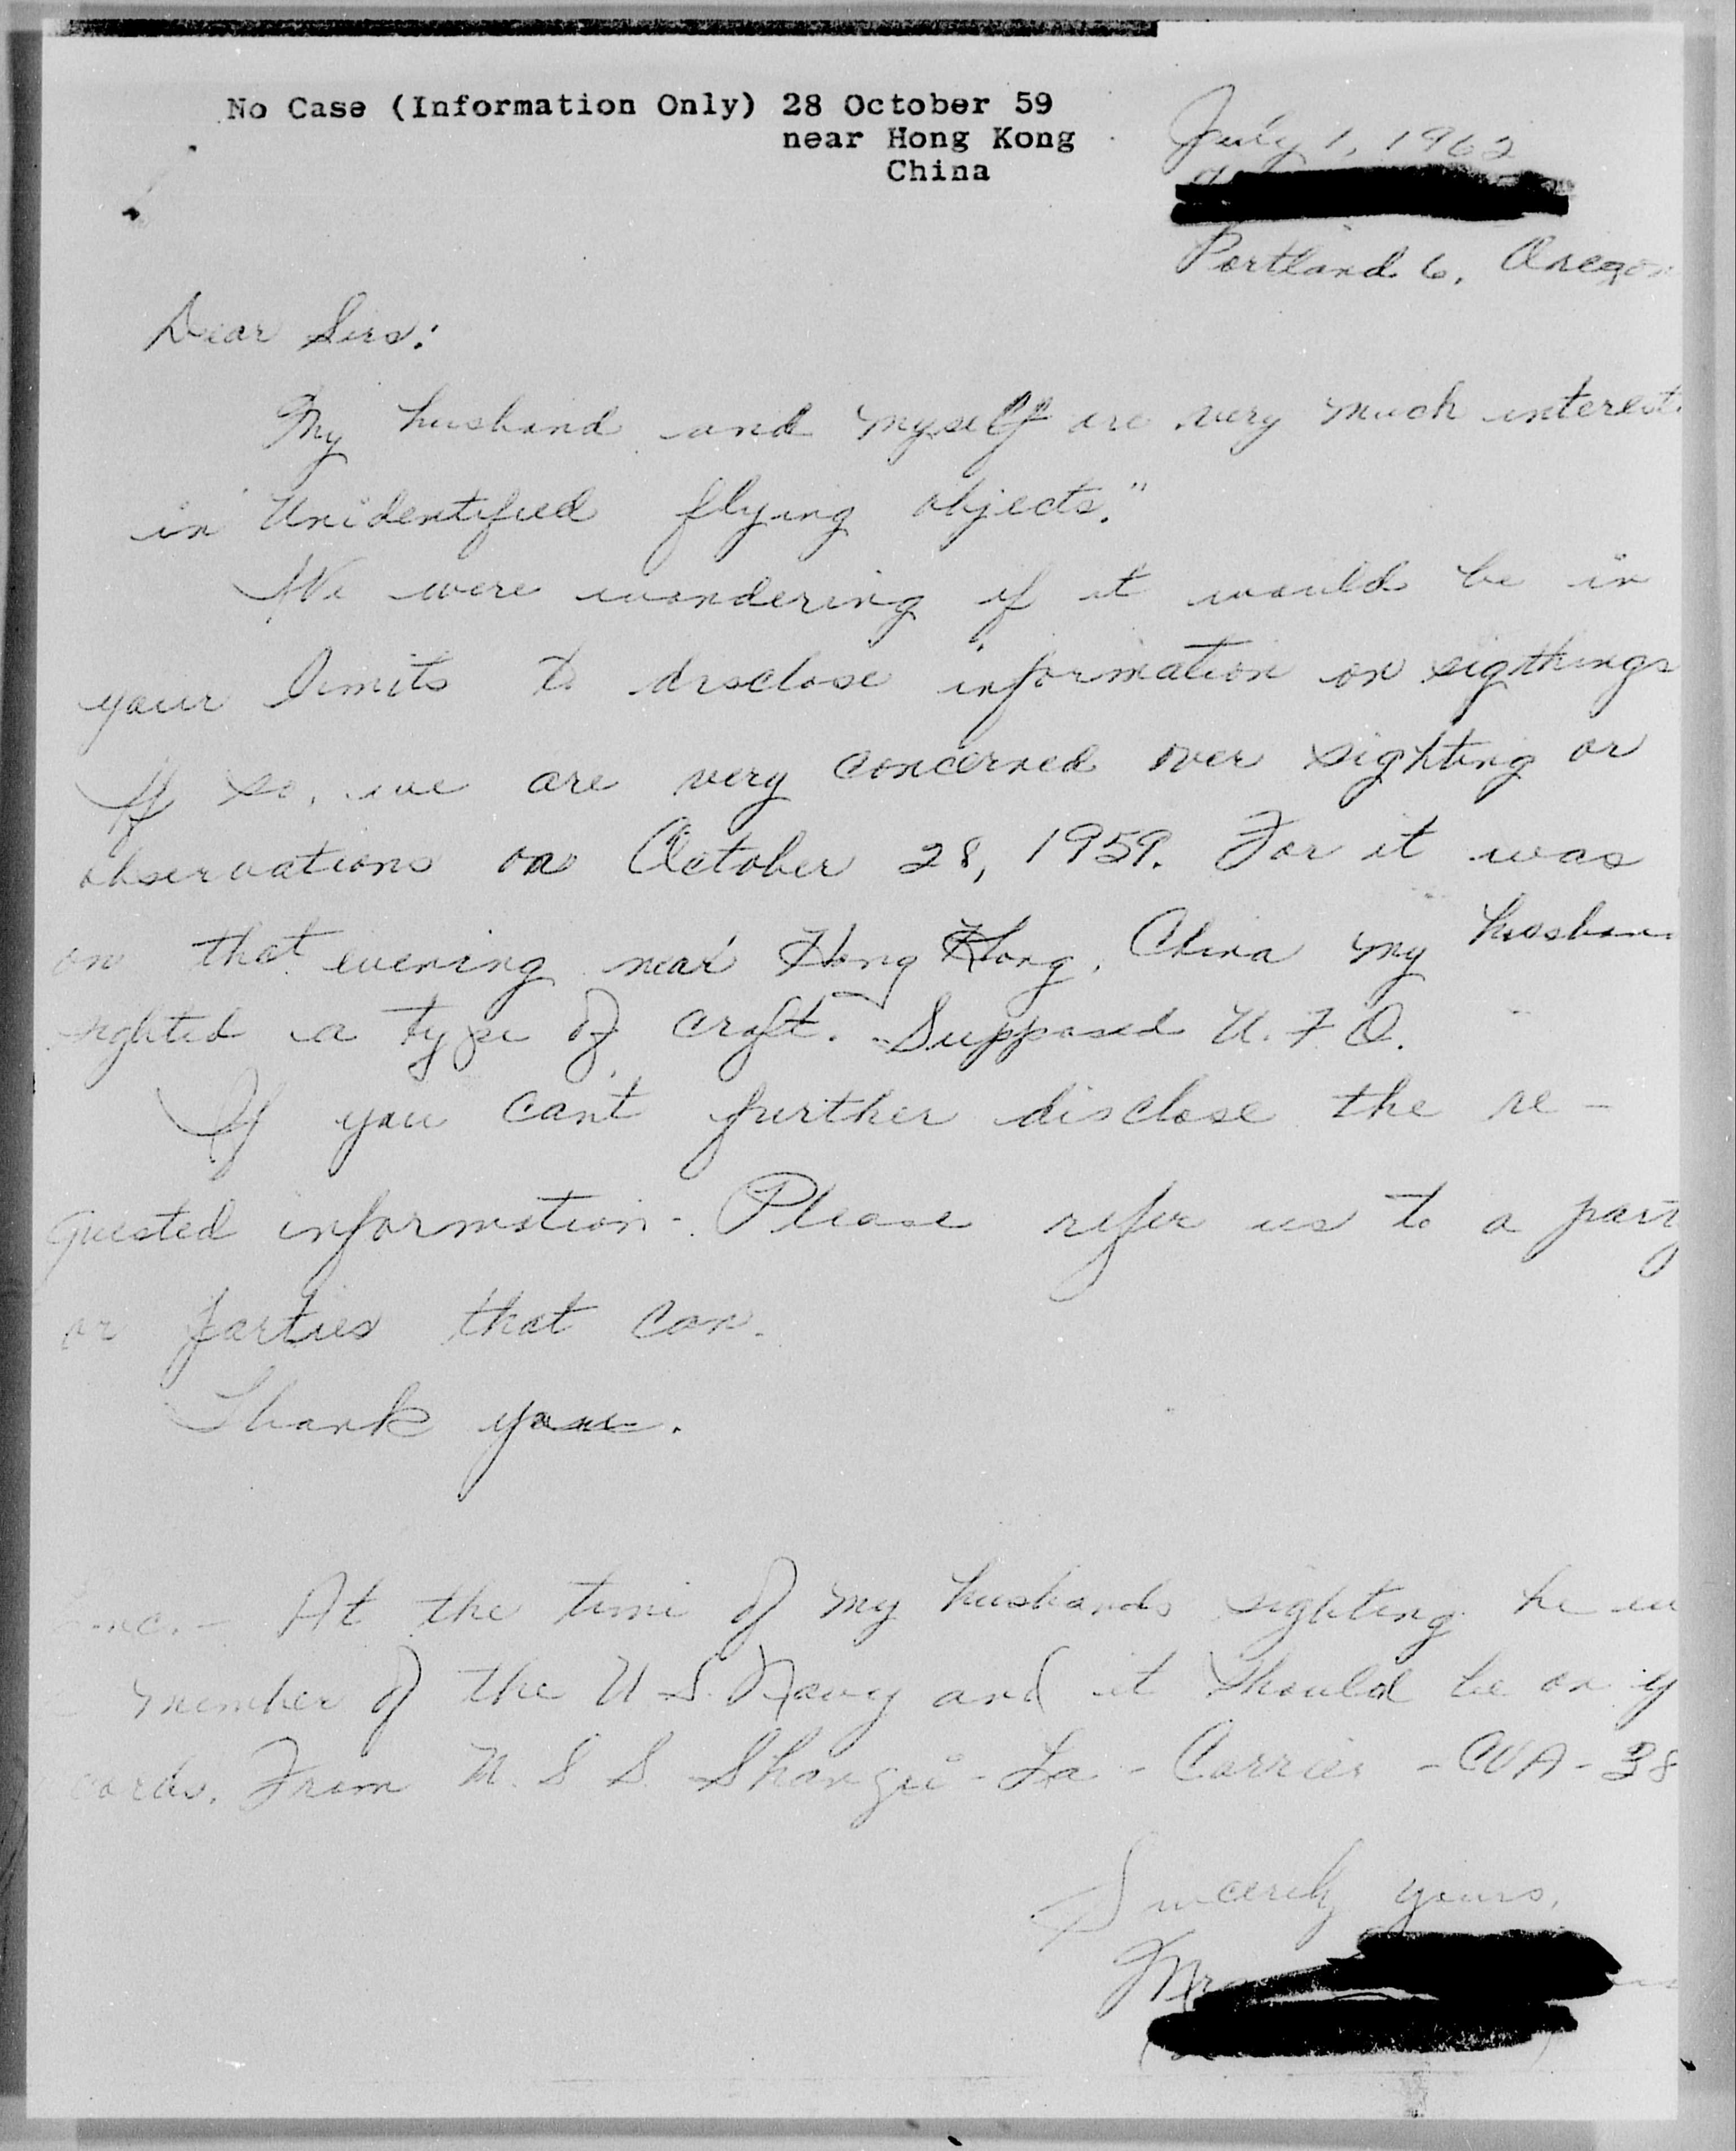 No Case (Information Only) 28 October 59
near Hong Kong
China
July 1, 1962
Portland 6, Oregon
Dear Sirs:
My husband and myself are very much interest
in "Unidentified flying objects."
We were wondering if it would be in
your limits to disclose information on sigthings
If so, we are very concerned over sighting or
observations on October 28, 1959. For it was
on that evening near Hong Kong, China my husban
sighted a type of craft. Supposed U.F.O.
If you cant further disclose the re-
quested information. Please refer us to a party
or parties that can.
Thank you.
At the time of my husbands sighting he
member of the U.S. Navy and it should be on y
cords. From U.S.S. Shangri-La - Carrier - CVA-38
Sincerely yours,